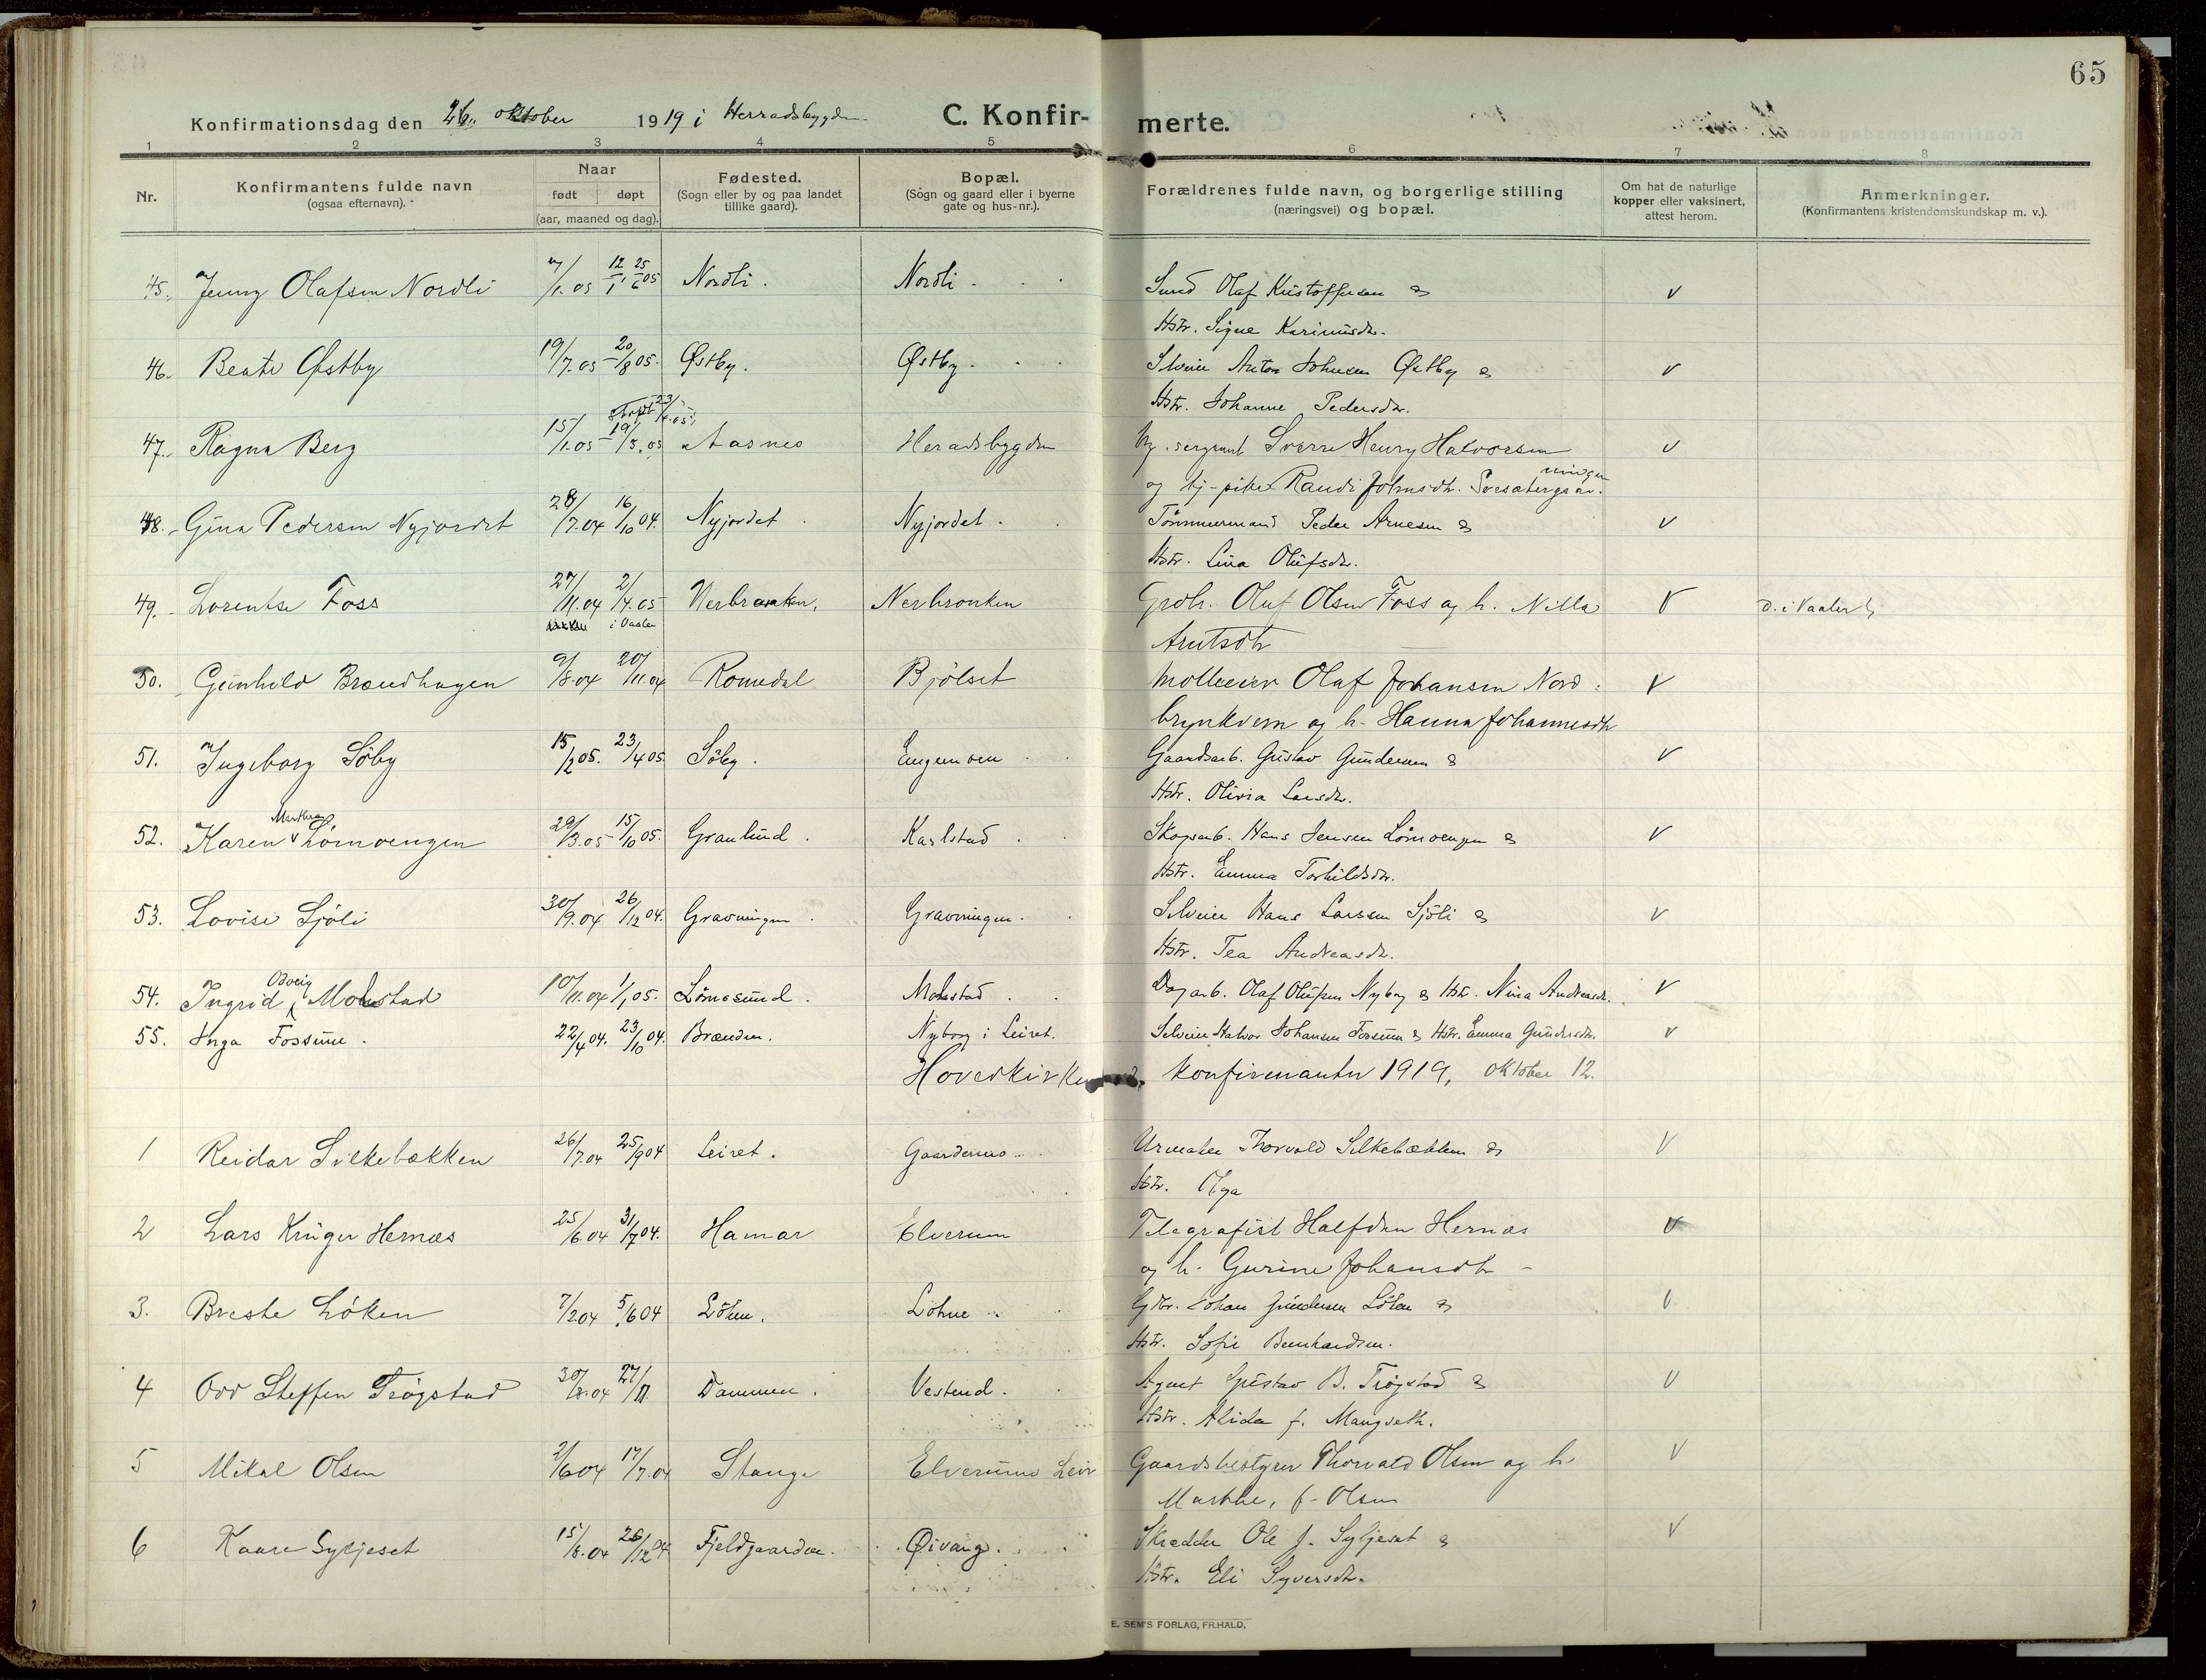 65
Konfirmationsdag den 26. oktober 1919 i Herradsbygden C. Konfir-merte.
1 2 3 4 5 6 7 8
Nr.
Konfirmantens fulde navn
(ogsaa efternavn).
Naar
født døpt
(aar, maaned og dag).
Fødested.
(Sogn eller by og paa landet
tillike gaard).
Bopæl.
(Sogn og gaard eller i byerne
gate og hus-nr.).
Forældrenes fulde navn, og borgerlige stilling
(næringsvei) og bopæl.
Om hat de naturlige
kopper eller vaksinert,
attest herom.
Anmerkninger.
(Konfirmantens kristendomskundskap m. v.).
45. Jenny Olafsen Nordli Nordli. Nordli. Olaf Kristoffersen & v
Hstr. Signe Karinusdr.
46. Beate Østby 19/7.05 20/8 05. Østby. Østby. Selveier Anton Johnsen Østby & v
Hstr. Johanne Pedersdr.
47. Ragna Berg 15/1.05 19/3.05 Aasnes Heradsbygden sergeant Sverre Henry Halvorsen v
og tj-pike Randi Johnsdr.
48. Gina Pedersen Nyjordet 28/7.04 16/10 04. Nyjordet. Nyjordet. Tömmermand Peder Arnesen & v
Hstr. Lina Olufsdr.
49. Lorentse Foss 27/11.04 2/4.05 Nerbronken. Nerbronken Grdbr. Oluf Olsen Foss og h. Nilla v D. i Vaaler
i Vaaler
Arntsdtr
50. Gunhild Brændhagen 9/8.04 20/11.04 Romedal Bjölset Mölleeier Olaf Johansen Nord- v
brynkvern og h. Hanna Johannesdtr
51. Ingeborg Söby 15/2 05. 23/4 05. Söby. Engemoen Gaardsarb. Gustav Gundersen & v
Hstr. Olivia Larsdr.
Marthea
52. Karen v Lömoengen 29/3.05 15/10 05. Granlund. Karlstad Skogsarb. Hans Jensen Lömoengen & v
Hstr. Emma Torkildsdr.
53. Lovise Sjöli 30/9.04 26/12 04. Gravningen. Gravningen. Selveier Hans Larssen Sjöli & v
Hstr. Tea Andreasdr.
Odveig
54. Ingrid Molstad 10/11.04 1/1 05. Lömosund. Molstad. Dagarb. Olaf Olufsen Nyborg & Hstr. Nina Andreasdr. v
55. Inga Fossum. 22/4 04. 23/10 04. Brænden. Nyborg i Leiret. Selveier Halvor Johansen Fossum & Hstr. Emma Gundersdr. v
Hovedkirken konfirmanter 1919, oktober 12.
1 Reidar Silkebækken 26/7.04 25/9 04 Leiret. Gaardermo Urmaker Thorvald Silkebækken & v
Hstr. Olga
2 Lars Krüger Hernæs 25/6.04 31/7 04. Hamar Elverum Telegrafist Halfdan Hernæs v
og h. Gurine Johansdtr
3. Breste Löken 7/2 04 5/6 04 Löken. Löhne Gdbr. Johan Gundersen Löken & v
Hstr. Sofie Bernhardsen.
4 Odd Steffen Trögstad 30/8.04 27/11. Dammen. Vestend. Agent Gustav B. Trögstad & v
Hstr. Alida f. Mangseth.
5 Mikal Olsen 2/6 04 17/7.04 Stange Elverums Leir Gaardsbestyrer Thorvald Olsen og h v
Marthe, f. Olsen
6 Kaare Syljeset 15/8.04 26/12 04 Fjeldgaarden. Øivang. Skrædder Ole J. Syljeset & v
Hstr. Eli Syversdtr.
E. SEM'S FORLAG, FR.HALD.